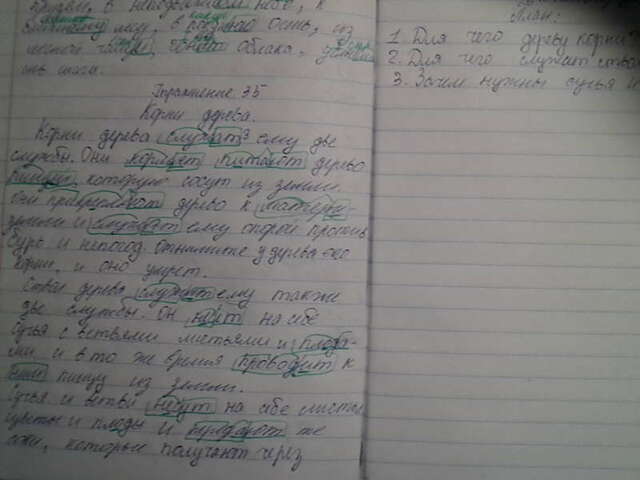 мую, в
облака.
Упражнение 35
Корни дерева.
Корни дерева служат³ ему две
службы. Они кормят питают дерево
пищей, которую сосут из земли.
Они прикрепляют дерево к матери-
земли и служат ему опорой против
бурь и непогод. отнимите у дерева его
корни, и оно умрет.
Ствол дерева служит ему также
две службы. Он несут на себе
сучья с ветвями листьями и плода-
ми и в то же время проводит к
ним пищу из земли.
сучья и ветви несут на себе листья
цветы и плоды и те
соки, которые получают через
План:
1. Для чего дереву корни?
2. Для чего служит ство
3. Зачем нужны сучья и